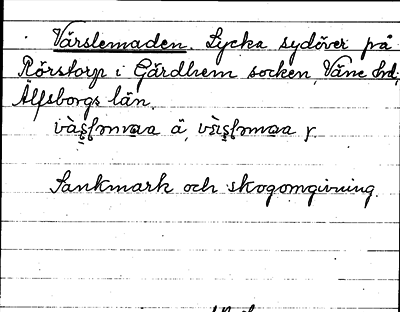 Värslemaden. Lycka sydöver på
Rörstorp i Gärdhem socken, Väne hd,
Älfsborgs län.
ä, y.
Sankmark och skogomgivning.